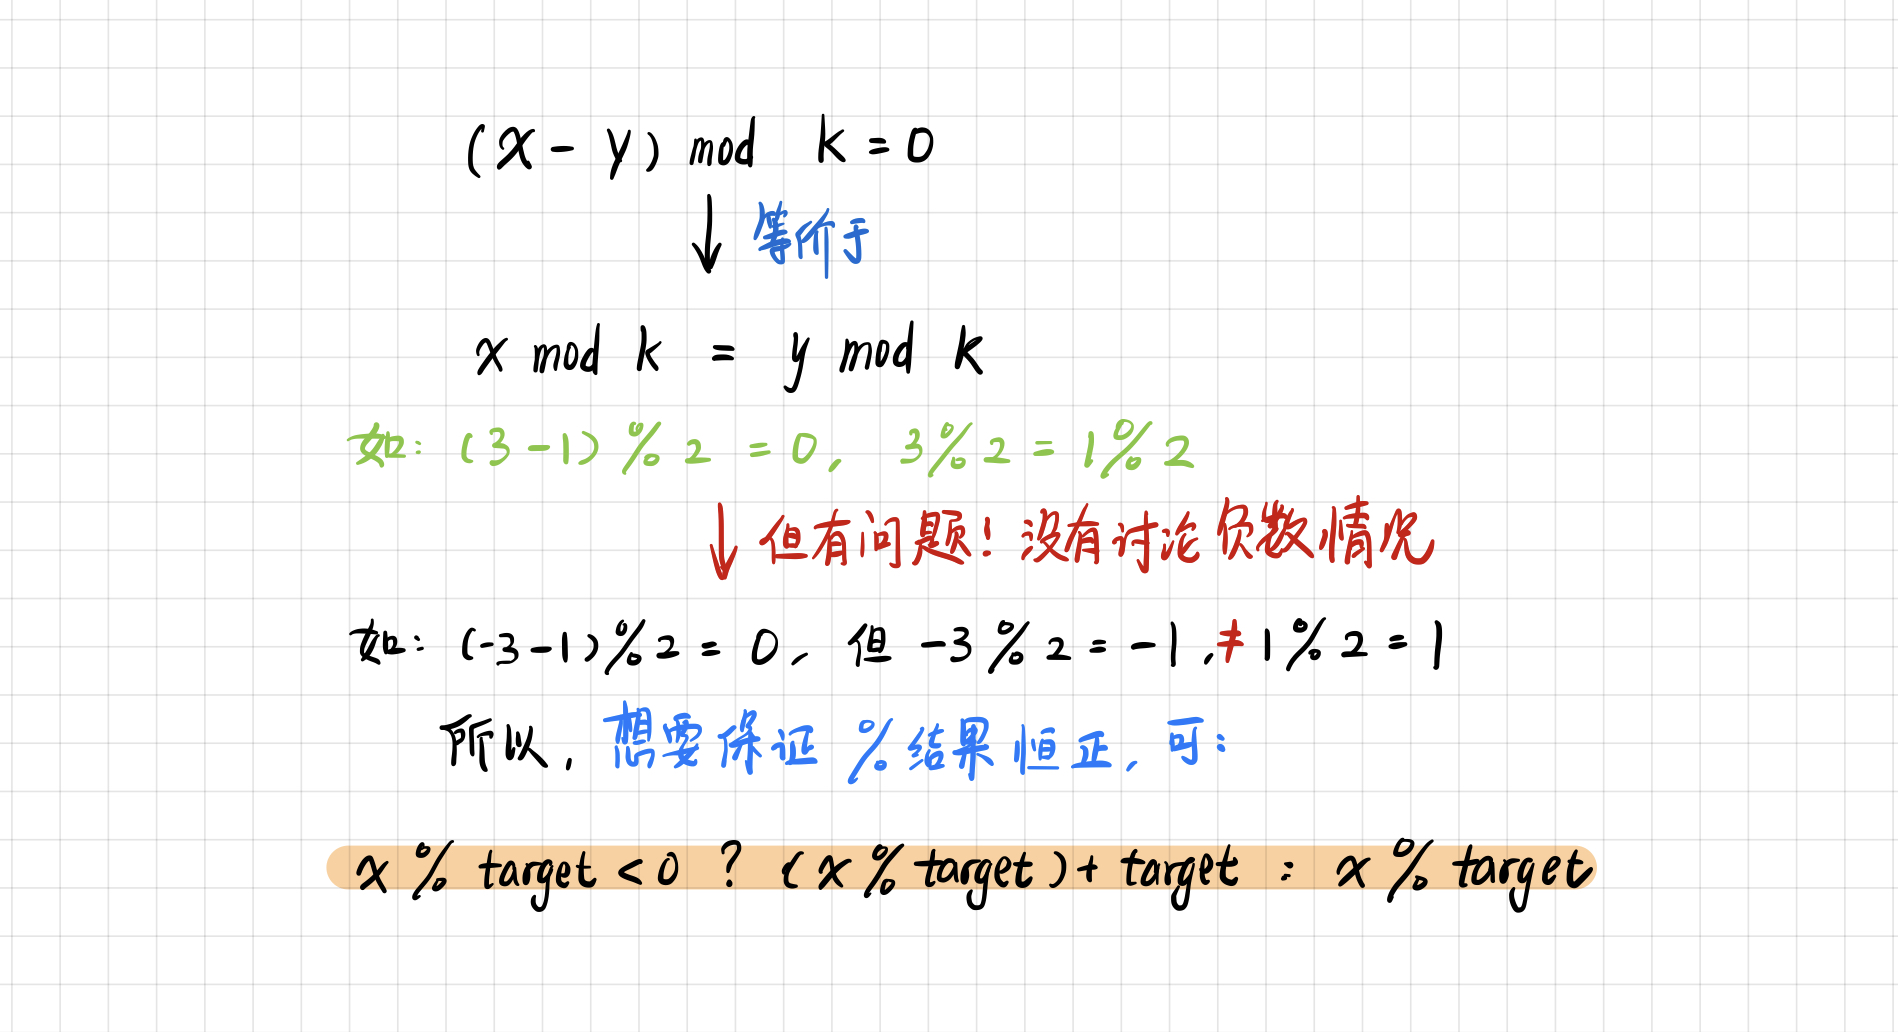 (x - y) mod k = 0
等价于
x mod k = y mod k
如: (3-1) % 2 = 0, 3%2 = 1%2
但有问题! 没有讨论负数情况
如: (-3-1)%2 = 0, 但 -3%2 = -1, ≠ 1%2 = 1
所以, 想要保证 %结果恒正, 可:
x % target < 0 ? (x % target) + target : x % target